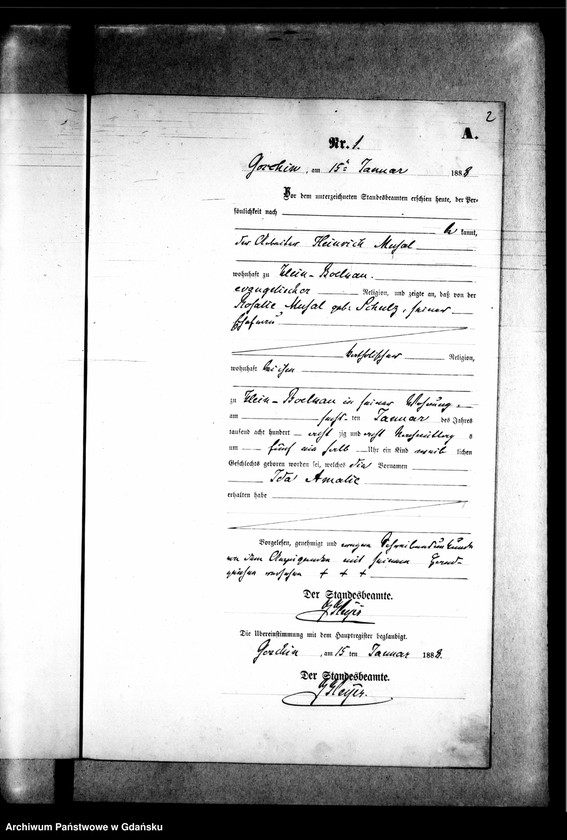 2
A.
Nr. 1.
Gorchin, am 15ten Januar 1888
Vor dem unterzeichneten Standesbeamten erschien heute, der Per-
sönlichkeit nach
be kannt,
der Arbeiter Heinrich Musal
wohnhaft zu Klein-Boelkau.
evangelischer Religion, und zeigte an, daß von der
Rosalie Musal geb: Schulz, seiner
Ehefrau
katholischer Religion,
wohnhaft bei ihm
zu Klein-Boelkau in seiner Wohnung,
am sechs-ten Januar des Jahres
tausend acht hundert achtzig und acht Nachmittags
um fünf ein halb Uhr ein Kind weiblichen
Geschlechts geboren worden sei, welches die Vornamen
Ida Amalie
erhalten habe
Vorgelesen, genehmigt und wegen Schreibensunkunde
von dem Anzeigenden mit seinem Hand-
zeichen versehen + + +
Der Standesbeamte.
Die Übereinstimmung mit dem Hauptregister beglaubigt.
Gorchin, am 15 ten Januar 1888.
Der Standesbeamte.
Archiwum Państwowe w Gdańsku